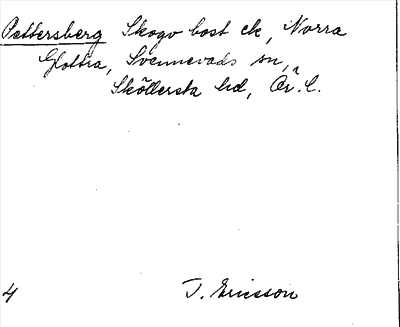 Pettersberg Skogv bost ek, Norra
Glottra, Svennevads sn,
Sköllersta hd, Ör. l.
4 J. Ericsson